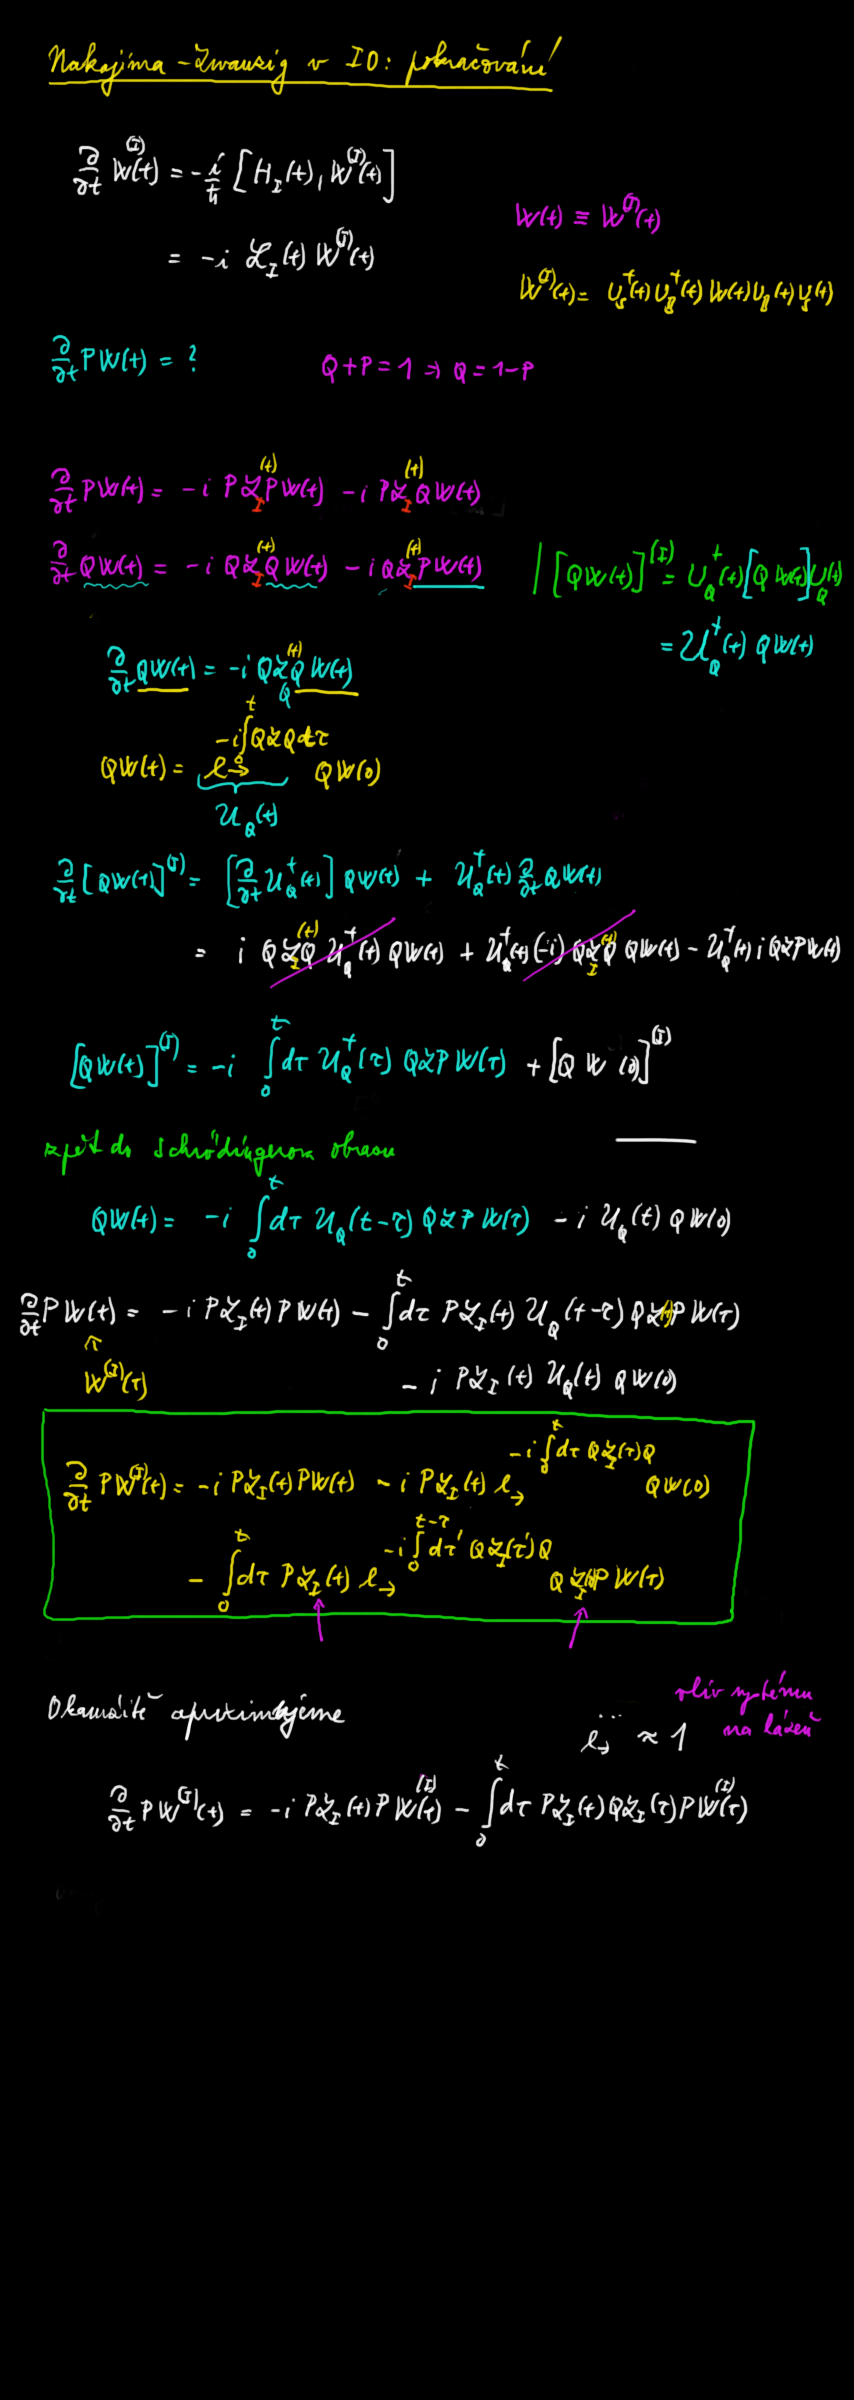 Nakajima - Zwanzig v IO: pokračování
∂/∂t W^(I)(t) = -i/ħ [H_I(t), W^(I)(t)]
= -i ℒ_I(t) W^(I)(t)
W(t) ≡ W^(I)(t)
W^(I)(t) = U_S^+(t) U_B^+(t) W(t) U_B(t) U_S(t)
∂/∂t PW(t) = ?
Q+P=1 ⇒ Q=1-P
∂/∂t PW(t) = -i Pℒ_I^(t) PW(t) - i Pℒ_I^(t) QW(t)
∂/∂t QW(t) = -i Qℒ_I^(t) QW(t) - i Qℒ_I^(t) PW(t)
| [QW(t)]^(I) = U_Q^+(t) [QW(t)] U_Q(t)
= 𝒰_Q^+(t) QW(t)
∂/∂t QW(t) = -i Qℒ^(t) Q W(t)
QW(t) = e_→^{-i∫_0^t QℒQ dτ} QW(0)
𝒰_Q(t)
∂/∂t [QW(t)]^(I) = [∂/∂t 𝒰_Q^+(t)] QW(t) + 𝒰_Q^+(t) ∂/∂t QW(t)
= i Qℒ_I^(t)Q 𝒰_Q^+(t) QW(t) + 𝒰_Q^+(t) (-i) Qℒ_I^(t)Q QW(t) - 𝒰_Q^+(t) i QℒPW(t)
[QW(t)]^(I) = -i ∫_0^t dτ 𝒰_Q^+(τ) QℒPW(τ) + [QW(0)]^(I)
zpět do Schrödingerova obrazu
QW(t) = -i ∫_0^t dτ 𝒰_Q(t-τ) QℒPW(τ) - i 𝒰_Q(t) QW(0)
∂/∂t PW(t) = -i Pℒ_I(t) PW(t) - ∫_0^t dτ Pℒ_I(t) 𝒰_Q(t-τ) Qℒ(τ)PW(τ)
W^(I)(τ)
- i Pℒ_I(t) 𝒰_Q(t) QW(0)
∂/∂t PW^(I)(t) = -i Pℒ_I(t) PW(t) - i Pℒ_I(t) e_→^{-i∫_0^t dτ Qℒ_I(τ)Q} QW(0)
- ∫_0^t dτ Pℒ_I(t) e_→^{-i∫_0^{t-τ} dτ' Qℒ_I(τ')Q} Qℒ_I(τ)PW(τ)
Okamžitě aproximujeme
e_→^{...} ≈ 1
vliv systému
na lázeň
∂/∂t PW^(I)(t) = -i Pℒ_I(t) PW^(I)(t) - ∫_0^t dτ Pℒ_I(t) Qℒ_I(τ) PW^(I)(τ)